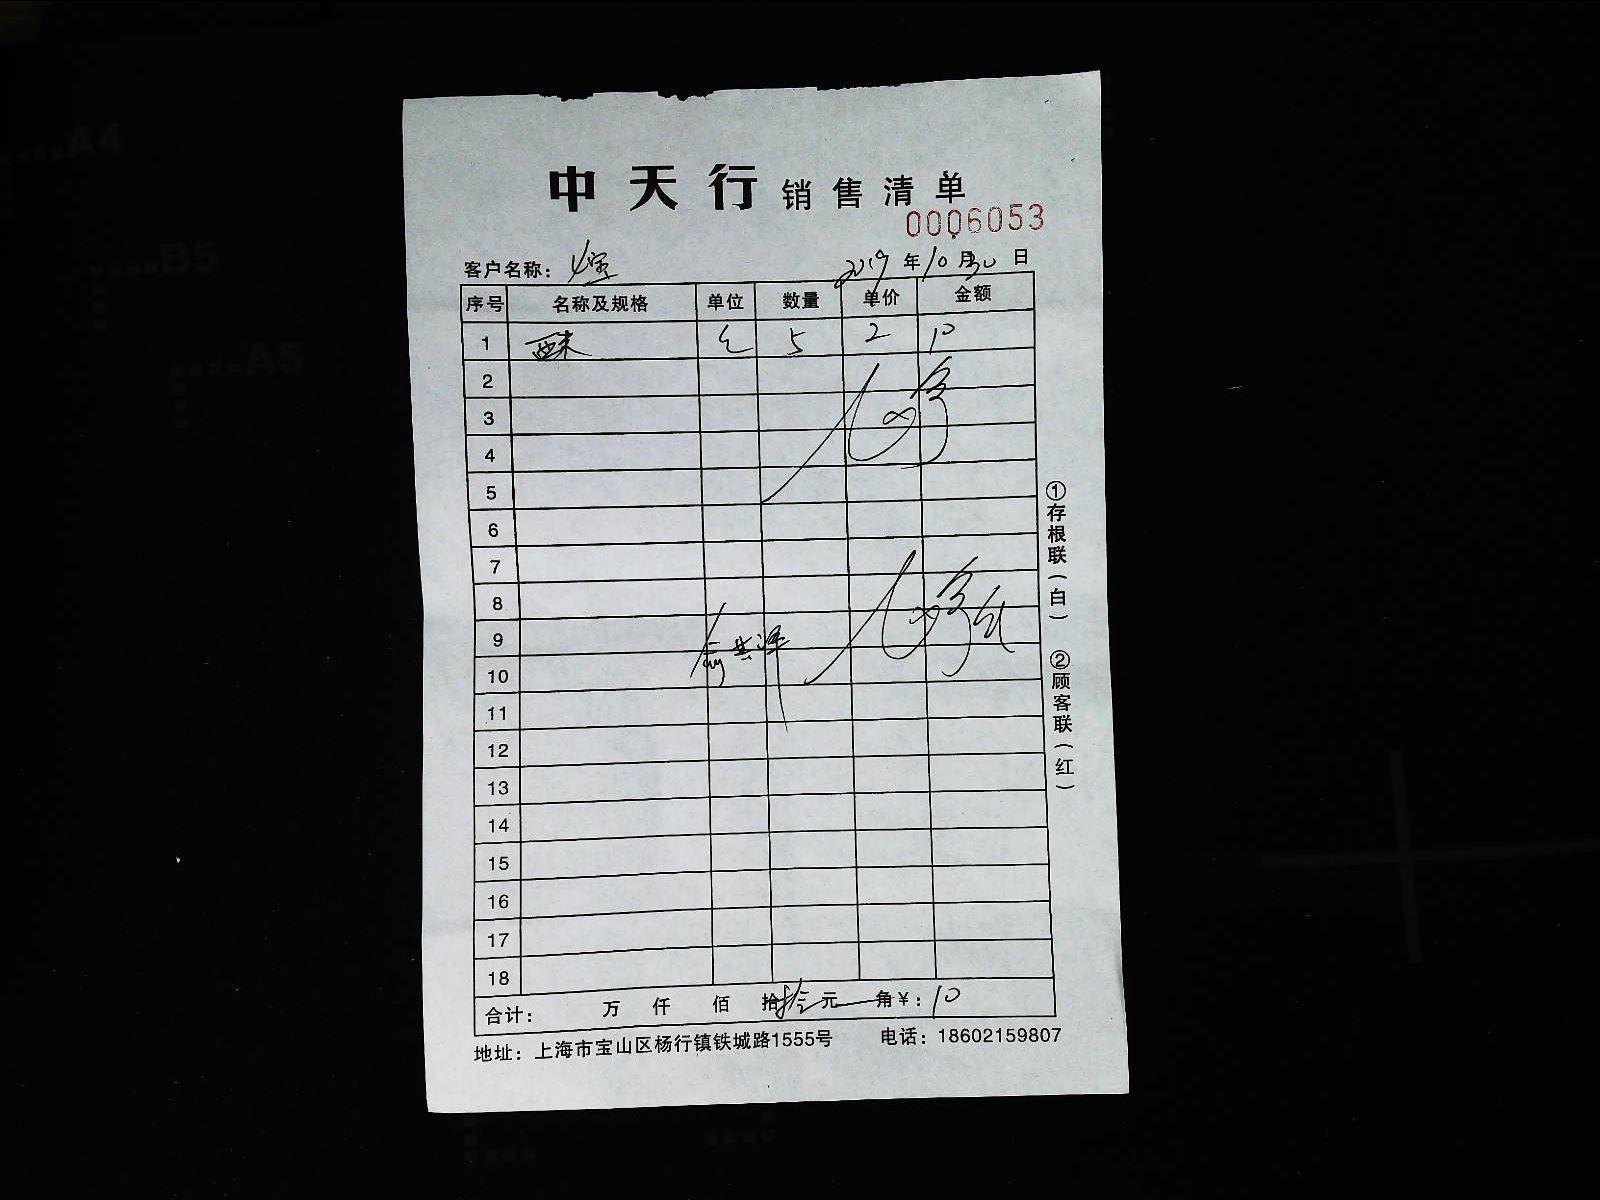 中天行 销售清单
0006053
客户名称： 2019年10月30日
序号 名称及规格 单位 数量 单价 金额
1 5 2 10
2
3
4
5
6
7
8
9
10
11
12
13
14
15
16
17
18
合计： 万 仟 佰 拾 元 角 ￥：10
地址：上海市宝山区杨行镇铁城路1555号 电话：18602159807
①存根联（白） ②顾客联（红）
A4
B5
A5